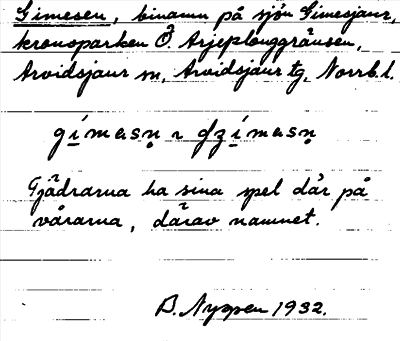 Gimesen, binamn på sjön Gimesjaur,
kronoparken Ö. Arjeplouggränsen,
Arvidsjaur sn, Arvidsjaur tg, Norrb. l.
Tjädrarna ha sina spel där på
vårarna, därav namnet.
B. Nyzpen 1932.